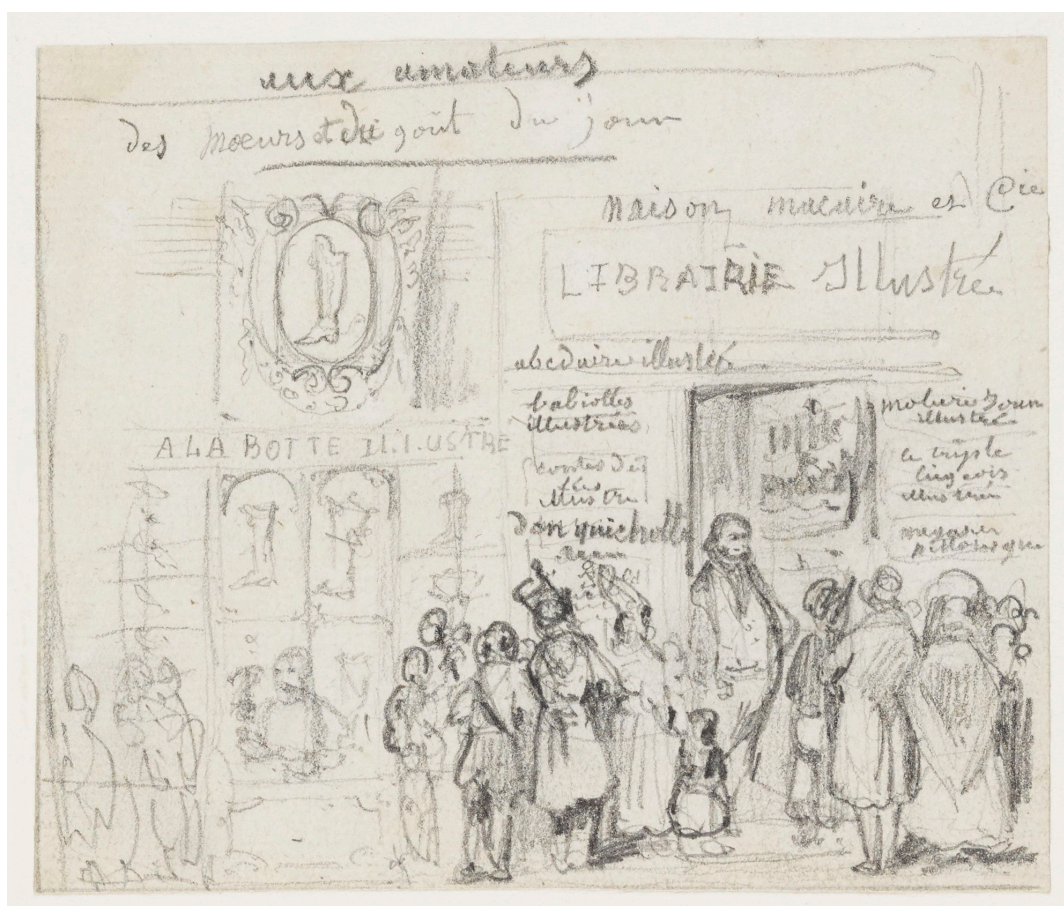 aux amateurs
des mœurs et du goût du jour
Maison macaire et Cie
LIBRAIRIE Illustré
abcdaire illustré
babiolles
illustrées
A LA BOTTE ILLUSTRE
contes des
illustre
don quichotte
illustré
le triple
liegeois
illustré
magasin
pittoresque